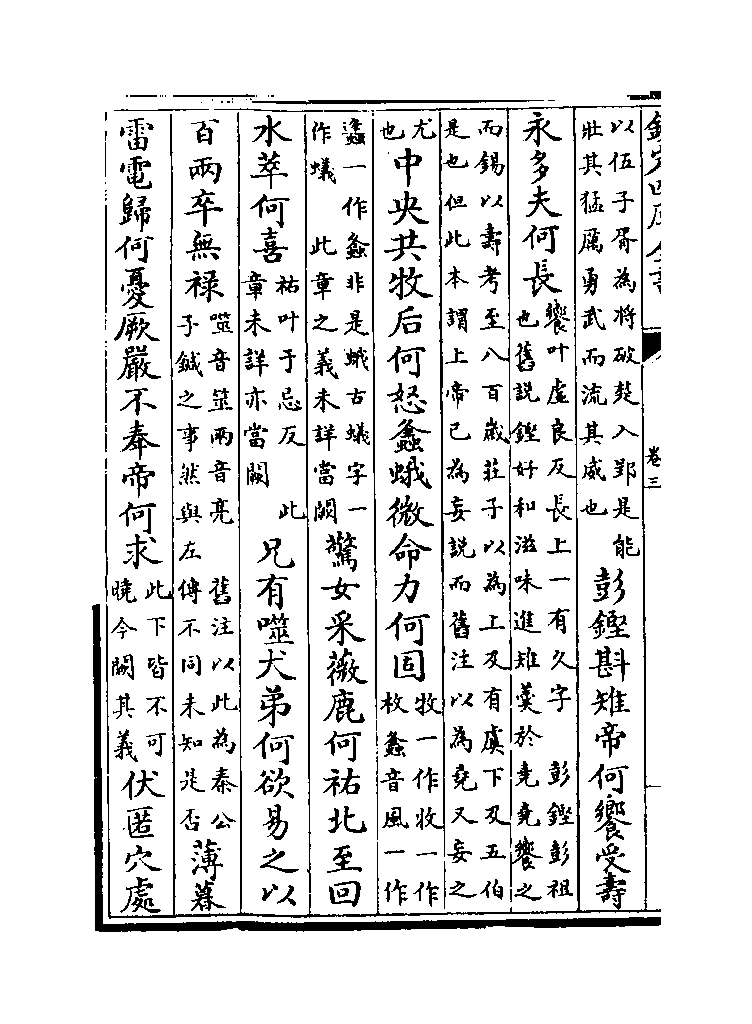 欽定四庫全書
卷三
以伍子胥為將破楚入郢是能
壯其猛厲勇武而流其威也
彭鏗斟雉帝何饗受壽
永多夫何長
饗叶虚良反長上一有久字　彭鏗彭祖
也舊説鏗好和滋味進雉羮於堯堯饗之
而錫以壽考至八百歳莊子以為上及有虞下及五伯
是也但此本謂上帝已為妄説而舊注以為堯又妄之
尤
也
中央共牧后何怒螽蛾微命力何固
牧一作收一作
枚螽音風一作
蠭一作螽非是蛾古蟻字一
作蟻　此章之義未詳當闕
驚女采薇鹿何祐北至回
水萃何喜
祐叶于忌反　此
章未詳亦當闕
兄有噬犬弟何欲易之以
百兩卒無禄
噬音筮兩音亮　舊注以此為秦公
子鍼之事然與左傳不同未知是否
薄暮
雷電歸何憂厥嚴不奉帝何求
此下皆不可
曉今闕其義
伏匿穴處